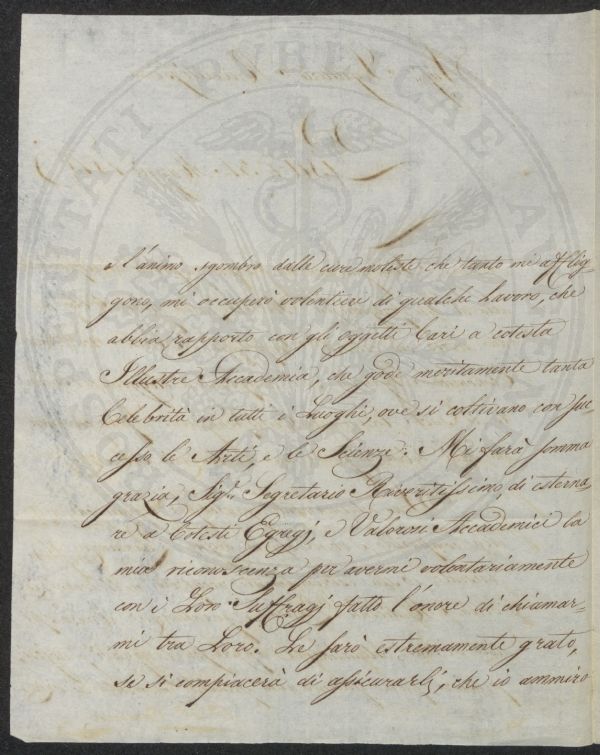 PROSPERITATI PVBLICAE A
l'animo sgombro dalle cure moleste che tanto mi afflig=
gono, mi occuperò volentieri di qualche lavoro, che
abbia rapporto con gli oggetti Cari a cotesta
Illustre Accademia, che gode meritamente tanta
Celebrità in tutti i Luoghi, ove si coltivano con suc
cesso le Arti, e le Scienze. Mi farà somma
grazia, Sig.r Segretario Riveritissimo, di esterna=
re a Cotesti Egregj, e Valorosi Accademici la
mia riconoscenza per avermi volontariamente
con i Loro Suffragj fatto l'onore di chiamar=
mi tra Loro. Le sarò estremamente grato,
se si compiacerà di assicurarli, che io ammiro